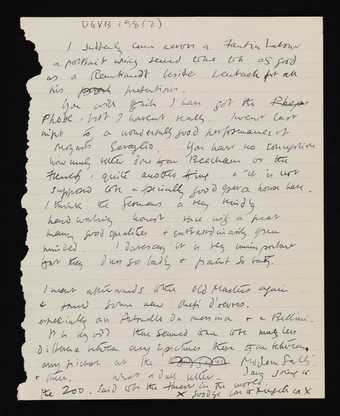 DGVB 198(2)
I suddenly came across a Fantin Latour
a portrait using seemed to me to be as good
as a Rembrandt beside Lenbach for all
his pretensions.
You will think I have got the
Phobe, but I haven't really. I went last
night to a wonderfully good performance of
Mozart's Seraglio. You have no conception
how much better done than Beecham or the
French, quite another thing & it is not
supposed to be a specially good opera house here.
I think the Germans a very kindly
hard working honest race with a great
many good qualities & extraordinarily open
minded. I daresay it is very unimportant
that they dress so badly & paint so badly.
I went afterwards to the old Masters again
& found some new chefs d'oeuvres.
especially an Antonello da Messina & a Bellini.
It is very odd there seemed to be much less
distance between any 2 pictures there than between
any picture at the Modern Gallery
& them. What a dull letter. I am going to
the Zoo. Said to be the finest in the world